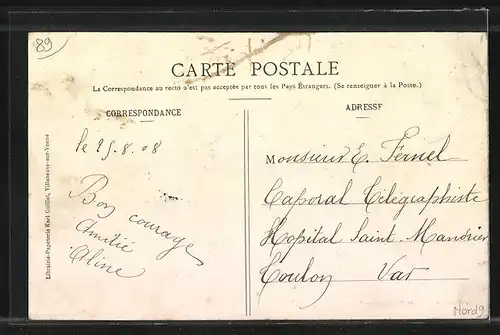 89
CARTE POSTALE
La Correspondance au recto n'est pas acceptée par tous les Pays Étrangers. (Se renseigner à la Poste.)
CORRESPONDANCE
ADRESSE
le 25.8.08
Bon courage
Amitié
Aline
Monsieur E. Fernel
Caporal Télégraphiste
Hopital Saint. Mandrier
Toulon Var
Librairie-Papeterie Karl Guillot, Villeneuve-sur-Yonne
Mord9